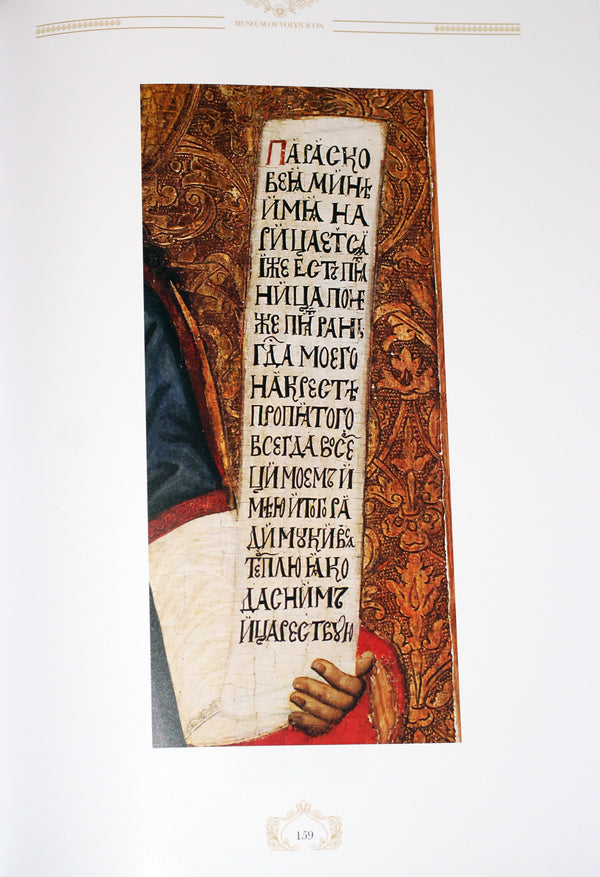 MUSEUM OF VOLYN ICON
ПАРАСКО
ВЕꙖ МИНѢ
ИМꙖ НА
РИЦАЕТСꙖ
ІЖЕ ЕСТЪ ПꙖ
НИЦА ПОН
ЖЕ ПꙖ РАНЪ
ГДА МОЕГО
НА КРЕСТѢ
ПРОПꙖТОГО
ВСЕГДА ВОСЕ
ЦИ МОЕМЪ И
МѢЮ И ТОГО РА
ДИ МУКИ ВСꙖ
ТЕПЛЮ ꙖКО
ДА СНИМЪ
И ЦАРЕСТВУЮ
159